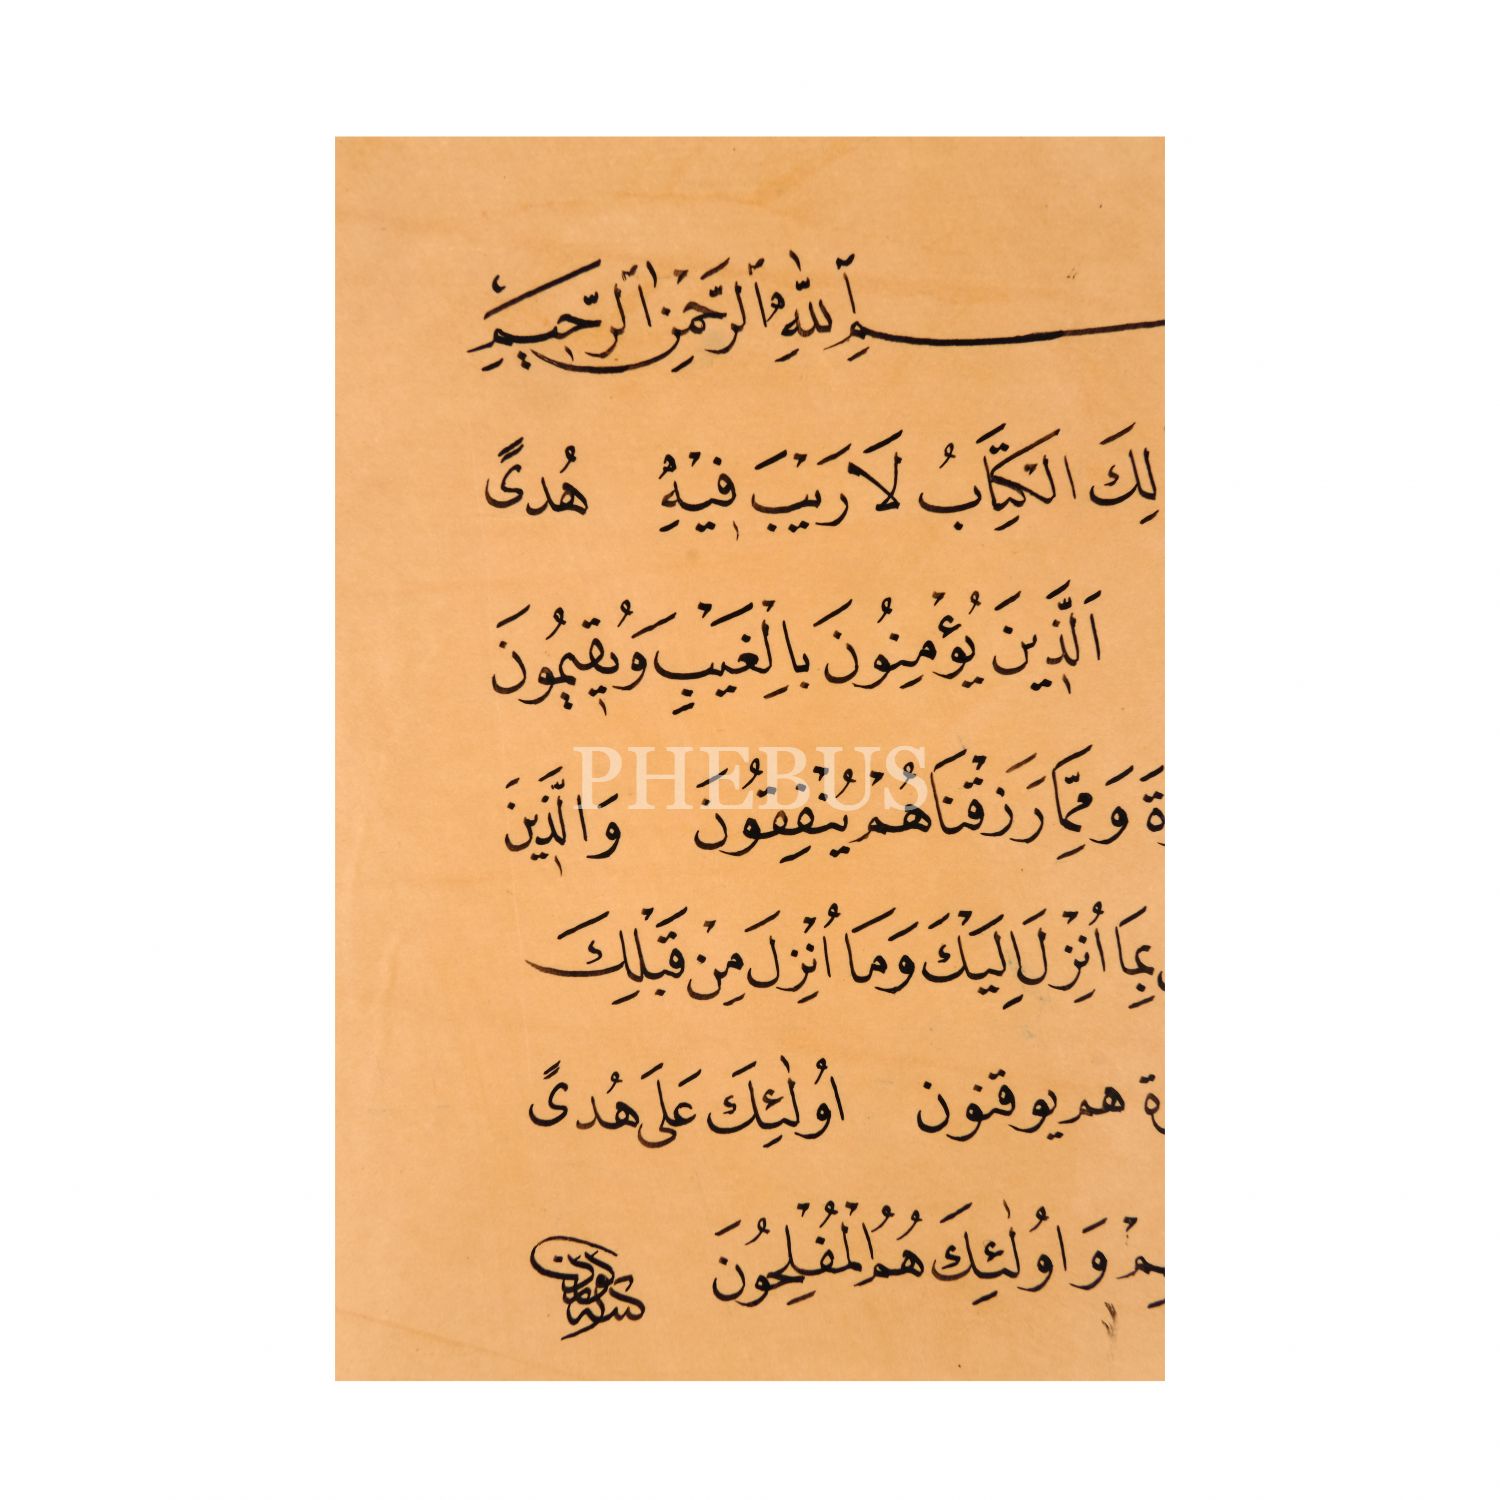 ـسمِ ٱللّٰهِ ٱلرَّحْمٰنِ ٱلرَّحِيمِ
لِكَ الْكِتَابُ لَا رَيْبَ فِيْهِ هُدىً
اَلَّذِينَ يُؤْمِنُونَ بِالْغَيْبِ وَيُقِيمُونَ
ةَ وَمِمَّا رَزَقْنَاهُمْ يُنْفِقُونَ وَالَّذِينَ
PHEBUS
بِمَا أُنْزِلَ اِلَيْكَ وَمَا أُنْزِلَ مِنْ قَبْلِكَ
ة هم يوقنون اُولٰئِكَ عَلَى هُدىً
ـهِمْ وَاُولٰئِكَ هُمُ الْمُفْلِحُونَ